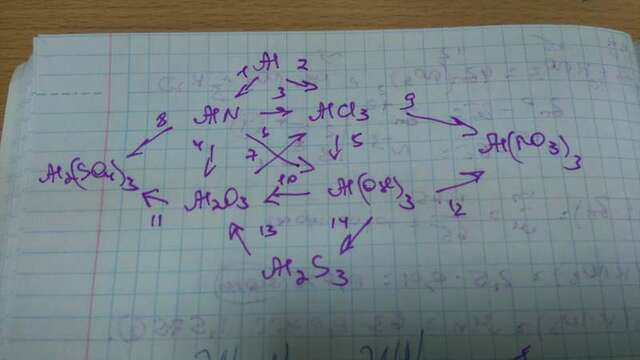 Al
1 2
3
8 AlN AlCl3 9
4 7 6 5
Al2(SO4)3 Al(NO3)3
10
Al2O3 Al(OH)3
11 13 14 12
Al2S3